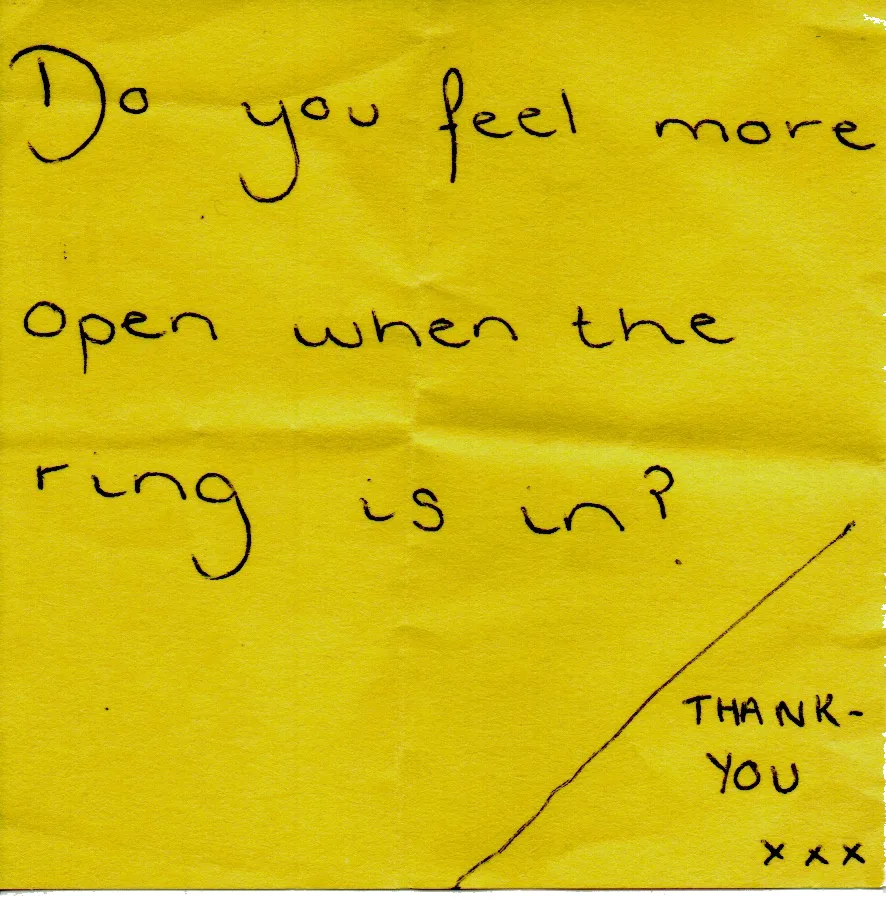 Do you feel more
open when the
ring is in?
THANK-
YOU
x x x